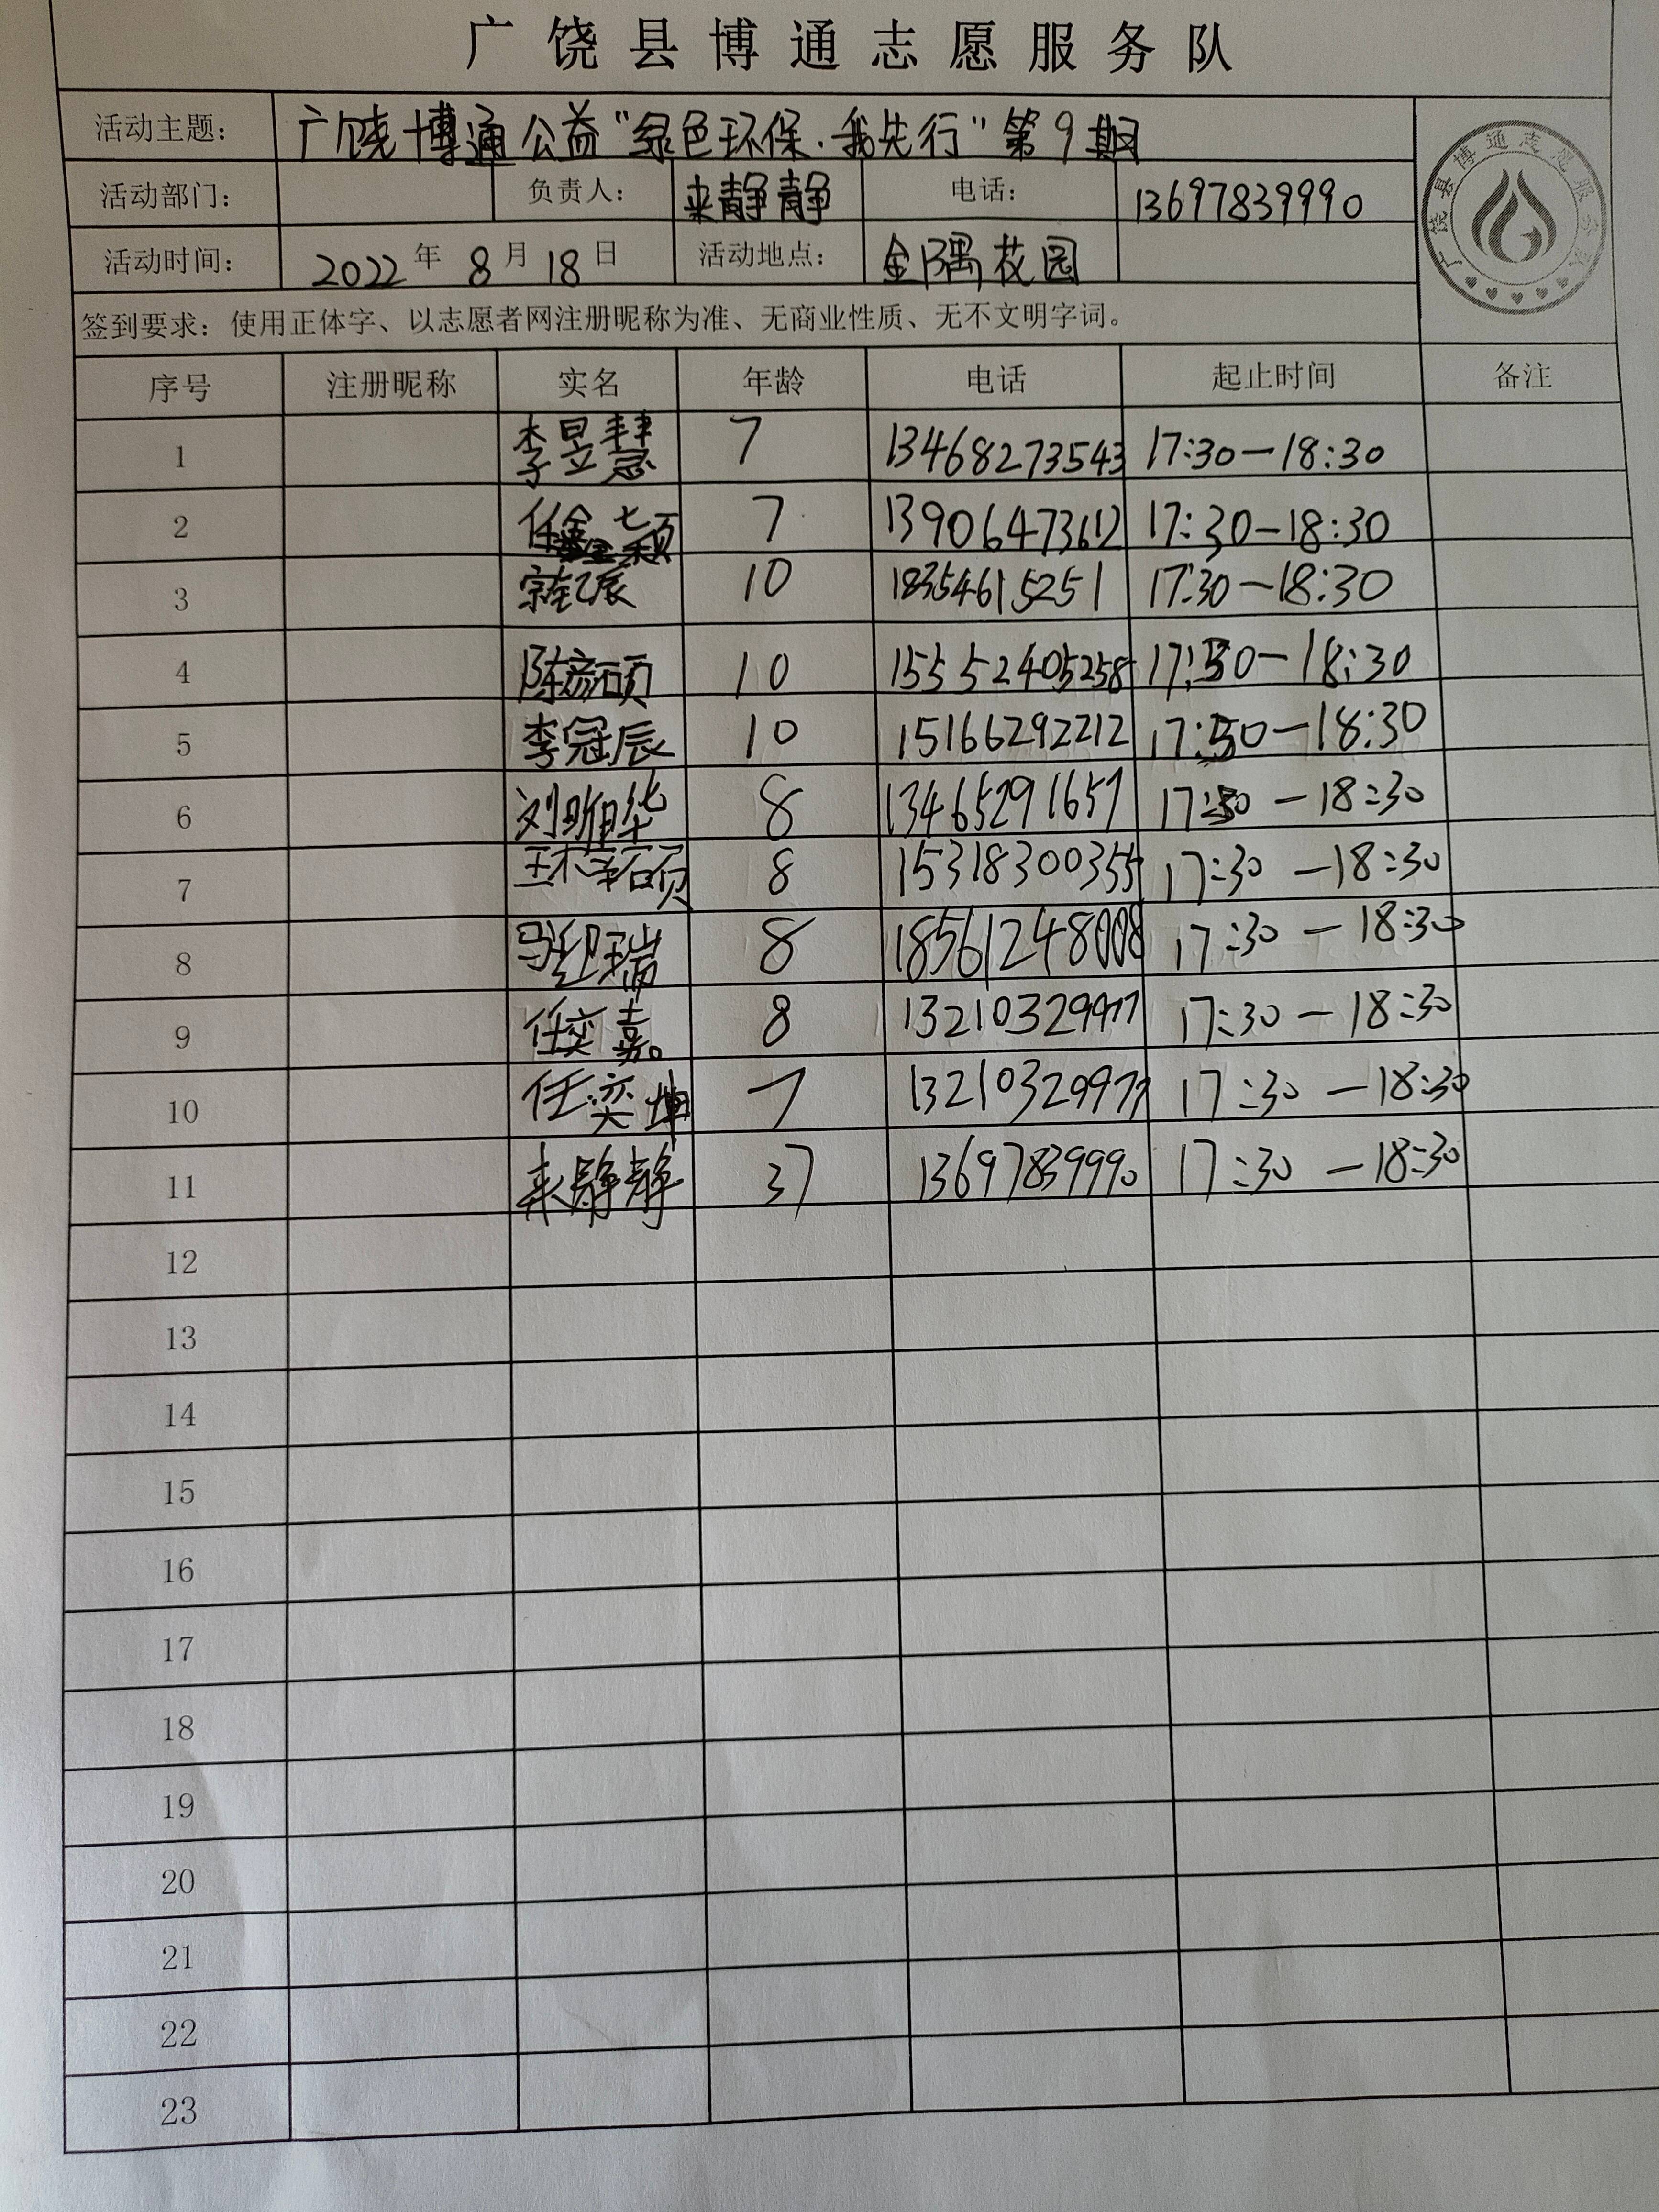 广饶县博通志愿服务队
活动主题： 广饶博通公益“绿色环保·我先行”第9期
活动部门： 负责人： 来静静 电话： 13697839990
活动时间： 2022年8月18日 活动地点： 金隅花园
广饶县博通志愿服务队
签到要求：使用正体字、以志愿者网注册昵称为准、无商业性质、无不文明字词。
序号 注册昵称 实名 年龄 电话 起止时间 备注
1 李昱慧 7 13468273543 17:30-18:30
2 任 颖 7 13906473612 17:30-18:30
3 辰 10 18354615251 17:30-18:30
4 陈彦硕 10 15552405258 17:30-18:30
5 李冠辰 10 15166292212 17:30-18:30
6 刘 华 8 13465291657 17:30-18:30
7 王梓硕 8 15318300355 17:30-18:30
8 马 瑞 8 18561248008 17:30-18:30
9 任奕嘉 8 13210329977 17:30-18:30
10 任奕坤 7 13210329977 17:30-18:30
11 来静静 37 13697839990 17:30-18:30
12
13
14
15
16
17
18
19
20
21
22
23